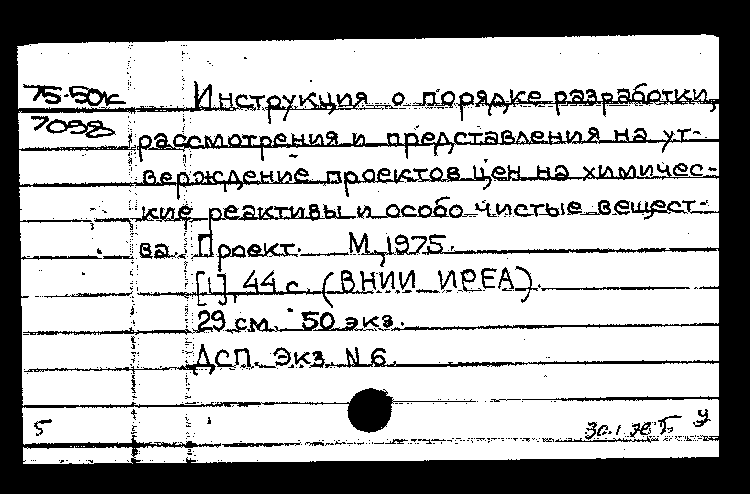 75-50к Инструкция о порядке разработки,
7098 рассмотрения и представления на ут-
верждение проектов цен на химичес-
кие реактивы и особо чистые вещест-
ва. Проект. М., 1975.
[1], 44 с. (ВНИИ ИРЕА).
29 см. 50 экз.
ДСП. Экз. N 6.
5 30.1.76 У